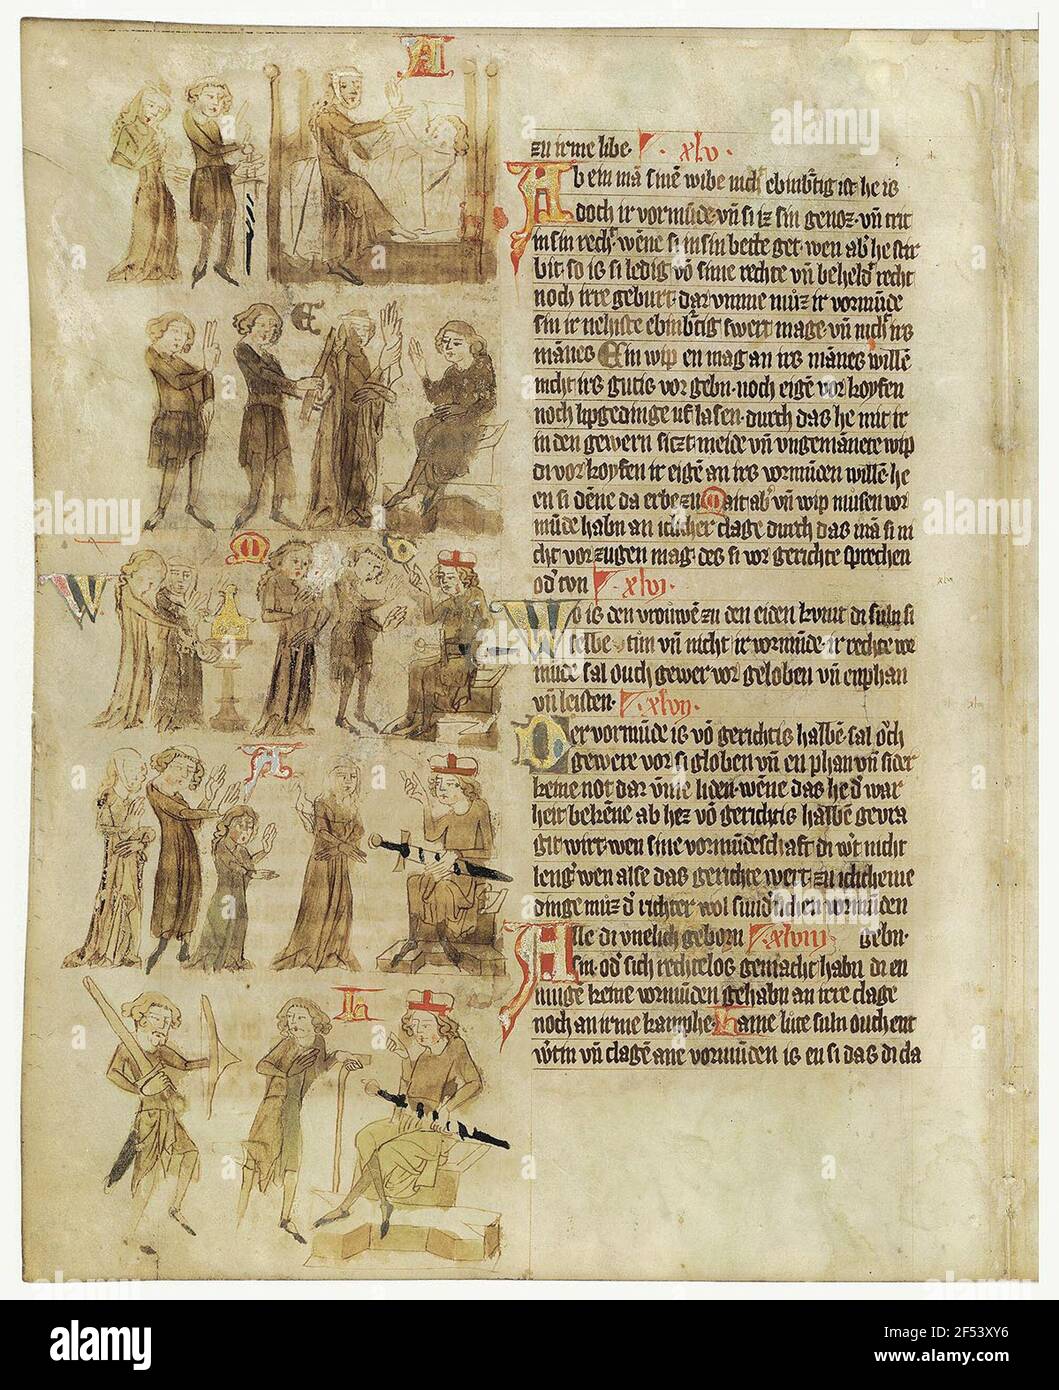 zu irme libe · xlv ·
Ab ein mā sinē wibe nicht ebinburtig ist he is
doch ir vormūde vn̄ si iz sin genoz · vn̄ trit
in sin recht · wēne si in sin bette get · wen abir he stir
bit · so is si ledig vō sime rechte vn̄ beheldit recht
noch irre geburt · dar vmme muz ir vormūde
sin ir nehiste ebinburtig swert mage vn̄ nicht irs
mānes Ein wip en mag an irs mānes willē
nicht irs gutis vor gebn · noch eigē vorkoyfen
noch lipgedinge uf lasen · durch das he mit ir
in den gewern siczt meide vn̄ vngemānete wip
di vorkoyfen ir eigē an irs vormūden willē he
en si dēne da erbe zu Mait abir vn̄ wip musen vor
mūde habn an iclicher clage durch das mā si ni
cht vorzugen mag · des si vor gerichte sprechen
odir ton · xlvi ·
Wo is den vrouwē zu den eiden kumt di suln si
selbe tun vn̄ nicht ir vormūde · ir rechte vor
mūde sal ouch gewer vor geloben vn̄ enphan
vn̄ leisten · xlvij ·
Der vormūde is vō gerichtis halbē sal och
gewere vor si globen vn̄ en phan vn̄ sider
keine not dar vm̄e liden · wēne das he der war
heit bekēne ab hez vō gerichtis halbē gevra
git wirt · wen sine vormūdeschaft di wert nicht
lengir wen alse das gerichte wert · zu iclicheme
dinge muz der richter wol sundirlichen vormūden
Alle di vnelich geborn · xlviij gebn ·
sin · odir sich rechtelos gemacht habn di en
mugē keine vormūden gehabn an irre clage
noch an irme kamphe · Lame lute suln ouch ent
wertin vn̄ clagē ane vormūden is en si das di cla
A
E
W
M
D
A
L
alamy
Image ID: 2F53XY6
www.alamy.com